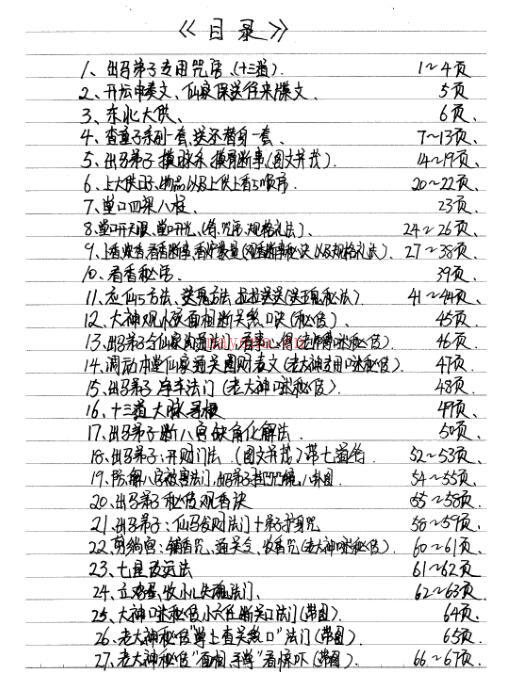 《目录》
1、出马弟子专用咒语、(十三道). 1~4页
2、开坛申表文、仙家保送往来牒文、 5页
3、东北大供、 6页、
4、查童子系列一套,送还替身一套、 7~13页、
5、出马弟子摸脉条、摸脉断事(图文并茂). 14~19页、
6、上大供日子、物品以及上供上香与顺序 20~22页、
7、堂口四梁八柱、 23页
8、堂口开天眼、堂口开光、(符咒、规格礼法)、 24~26页、
9、上香、看香断事、香炉 27~38页、
10、看香秘法、 39页
11、方法、送 方法 41~44页、
12、大神观小 面相断关煞口诀(秘传) 45页
13、出马弟子与仙家沟通法门、看事心得(老师傅秘传) 46页
14、调动本堂仙家通关圆财表文(老大神专用口述秘传) 47页
15、出马弟子 法门(老大神口述秘传). 48页、
16、十三道大脉 49页、
17、出马弟子断八宫缺角化解法 50页、
18、出马弟子:开财门法(图文并茂)带七道符 52~53页、
19、防 八宫 法门,出马弟子 八卦图 54~55页、
20、出马弟子秘传观香诀 55~58页、
21、出马弟子:仙马发财法门+弟子护身咒 58~59页、
22、 铺香咒、通关令、收香咒(老大神口述秘传). 60~61页、
23、七星改运法 61~62页
24、立 收小儿失魂法门、 62~63页、
25、大神口述秘传小六壬断关口法门(带图) 64页、
26、老大神秘传"掌上查关煞口"法门(带图) 65页、
27、老大神秘传"面相手掌"看惊吓(带图) 66~67页、